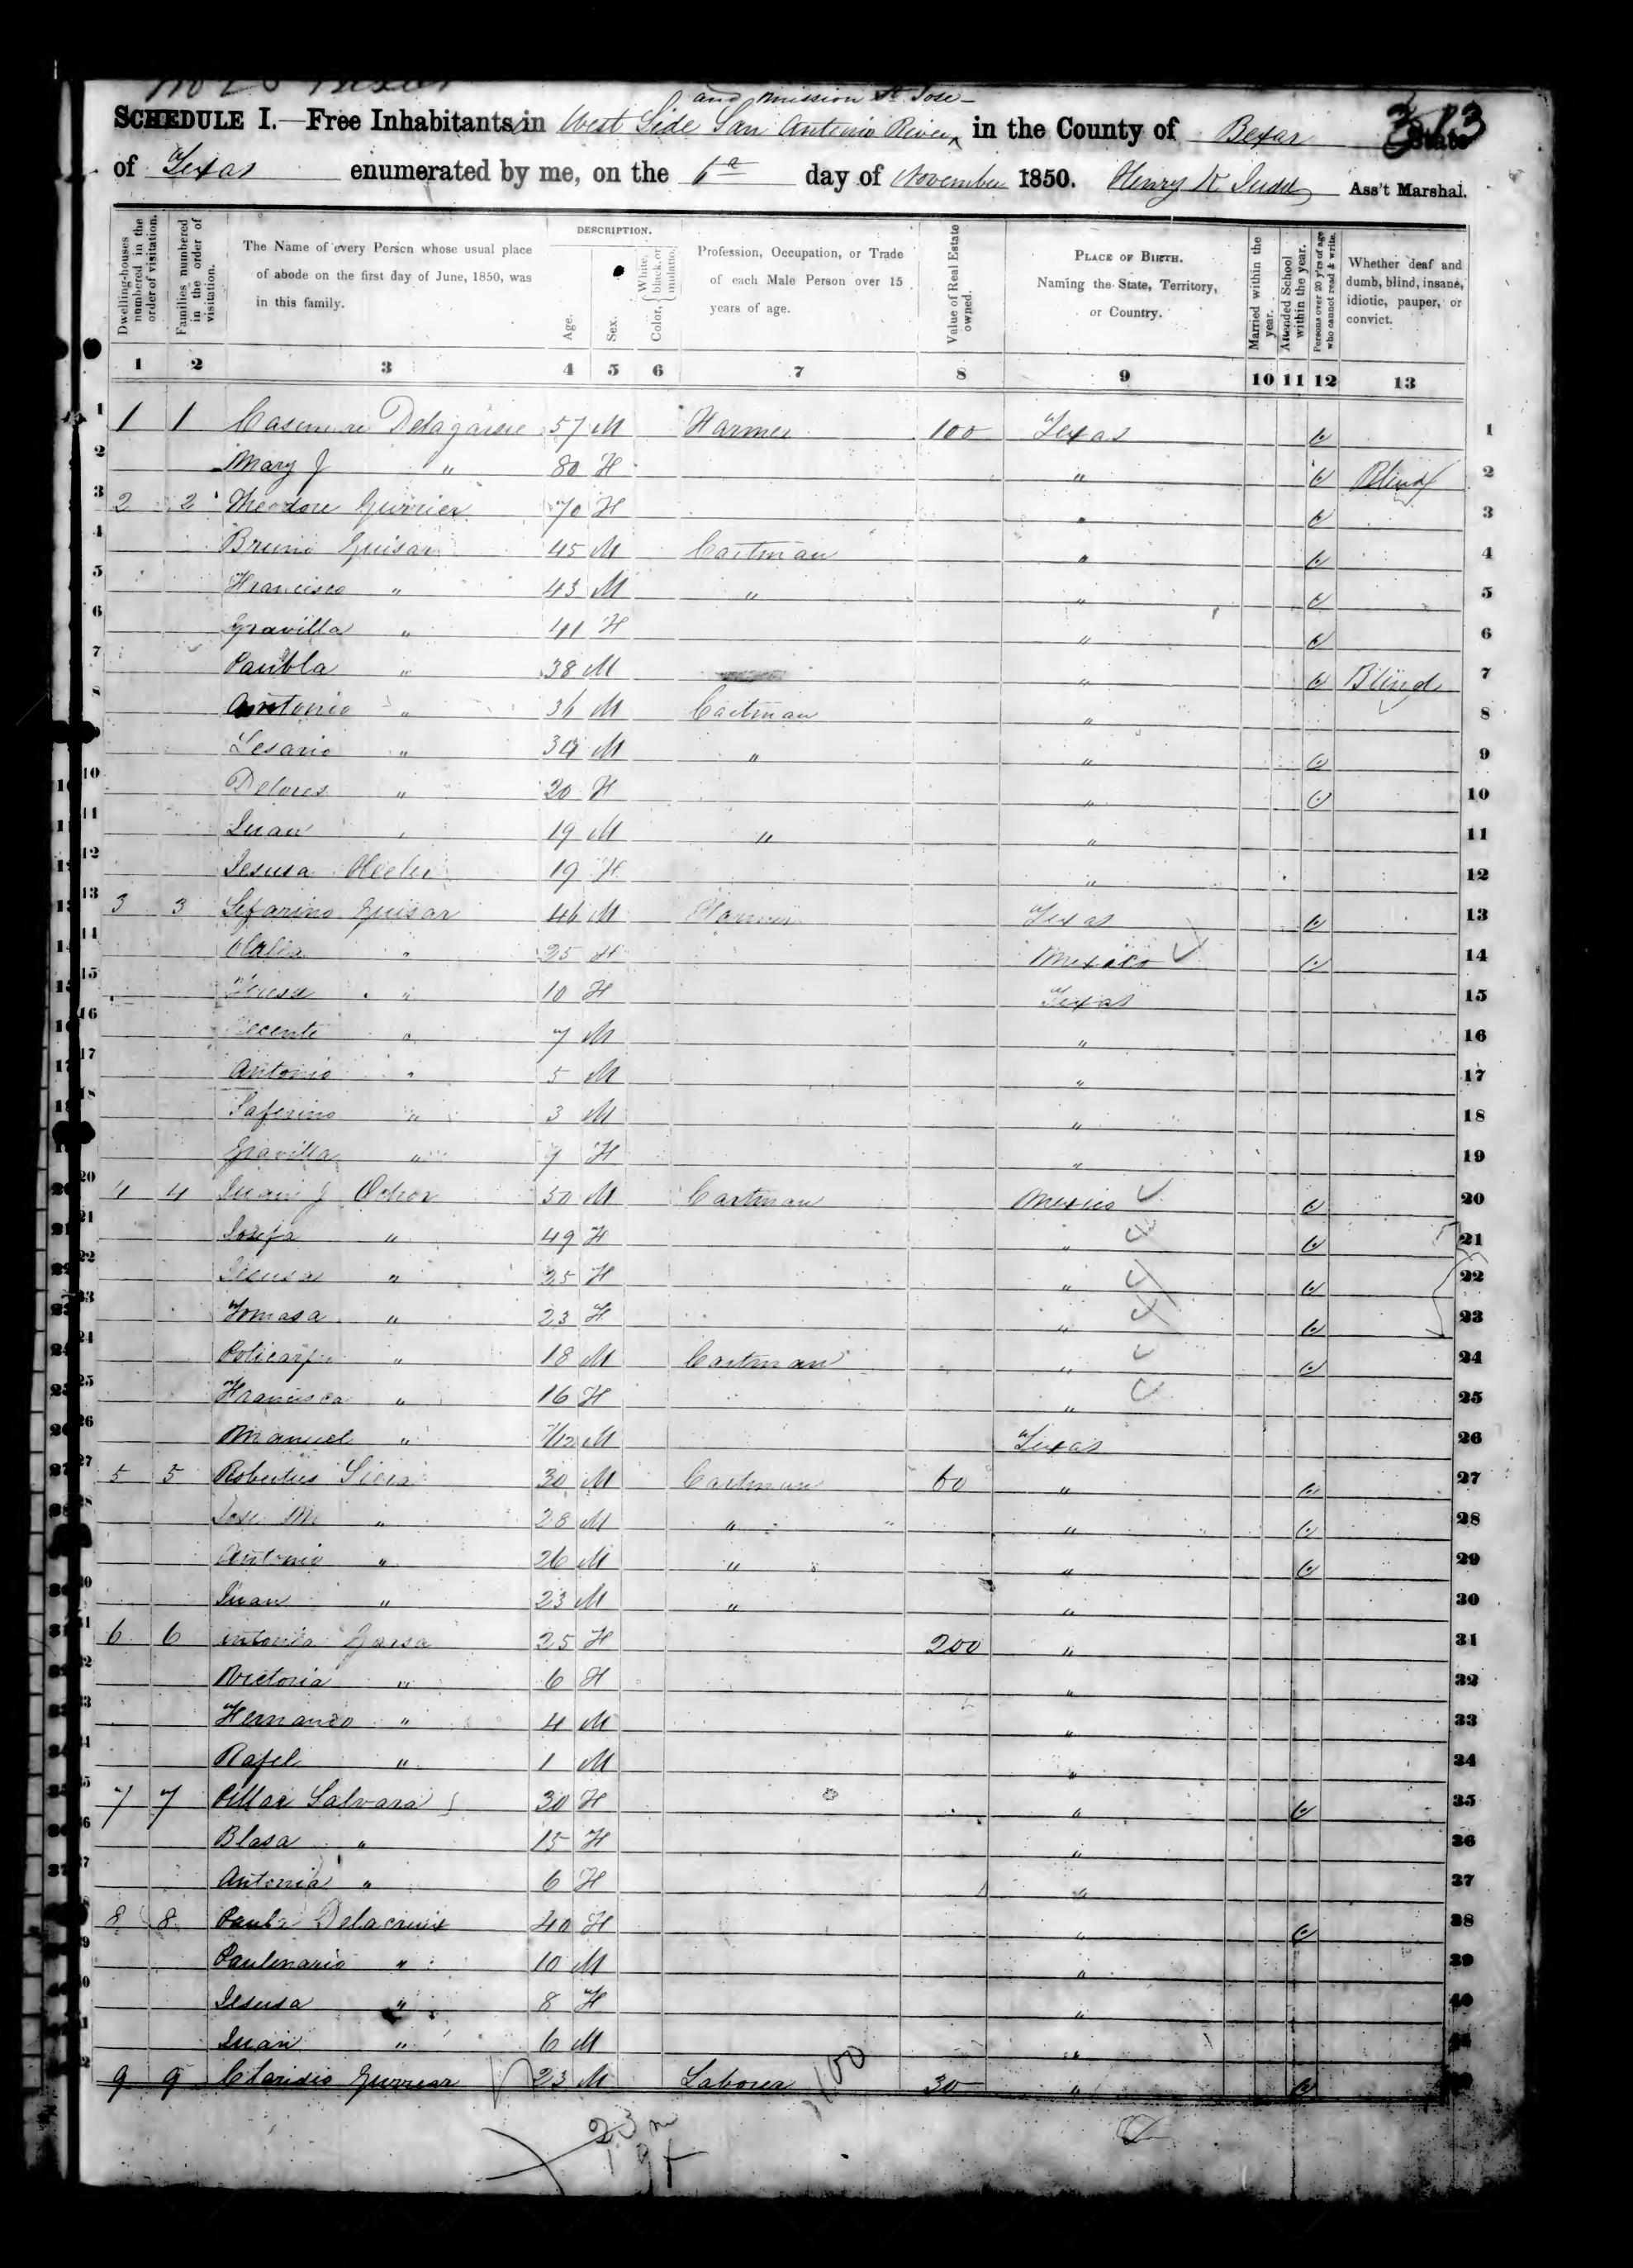 and Mission St Jose
SCHEDULE I.—Free Inhabitants in West Side San Antonio River in the County of Bexar State
313
of Texas enumerated by me, on the 6th day of November 1850. Henry K Judd Ass't Marshal.
Dwelling-houses numbered in the order of visitation.
Families numbered in the order of visitation.
The Name of every Person whose usual place of abode on the first day of June, 1850, was in this family.
DESCRIPTION.
Age.
Sex.
Color, { White, black, or mulatto.
Profession, Occupation, or Trade of each Male Person over 15 years of age.
Value of Real Estate owned.
PLACE OF BIRTH. Naming the State, Territory, or Country.
Married within the year.
Attended School within the year.
Persons over 20 y'rs of age who cannot read & write.
Whether deaf and dumb, blind, insane, idiotic, pauper, or convict.
1 2 3 4 5 6 7 8 9 10 11 12 13
1 1 1 Delagarsie 57 M Farmer 100 Texas 1
2 Mary J " 80 F " Blind 2
3 2 2 Theodore Gurrier 70 F " 3
4 Bruno Guisar 45 M Cartman " 4
5 Francisco " 43 M " " 5
6 Gravilla " 41 F " 6
7 Paubla " 38 M " Blind 7
8 Antonio " 36 M Cartman " 8
Lesario " 34 M " " 9
10 Delores " 20 F " 10
11 Juan " 19 M " " 11
12 Jesusa 19 F " 12
13 3 3 Sefarino Guisar 46 M Farmer Texas 13
14 " 25 F Mexico 14
15 Teresa " 10 F Texas 15
16 " 7 M " 16
17 Antonio " 5 M " 17
18 Saferino " 3 M " 18
Gravilla " 7 F " 19
20 4 4 Juan J Ochor 50 M Cartman Mexico 20
21 Josefa " 49 F " 21
22 Jesusa " 25 F " 22
23 Tomasa " 23 F " 23
24 Policarpo " 18 M Cartman " 24
25 Francisca " 16 F " 25
26 Manuel " 7/12 M Texas 26
27 5 5 30 M Cartman 60 " 27
28 Jose M " 28 M " " 28
Antonio " 26 M " " 29
30 Juan " 23 M " " 30
31 6 6 Antonia Garsa 25 F 200 " 31
32 Victoria " 6 F " 32
33 Hernando " 4 M " 33
34 Rafel " 1 M " 34
35 7 7 Pillar Salvara 30 F " 35
36 Blasa " 15 F " 36
37 Antonia " 6 F " 37
8 8 Paubla Delacruix 40 F " 38
39 Paulenario " 10 M " 39
40 Jesusa " 8 F " 40
41 Juan " 6 M "
42 9 9 Claridio Gurriar 23 M Laborer 30 "
23 m
19 f